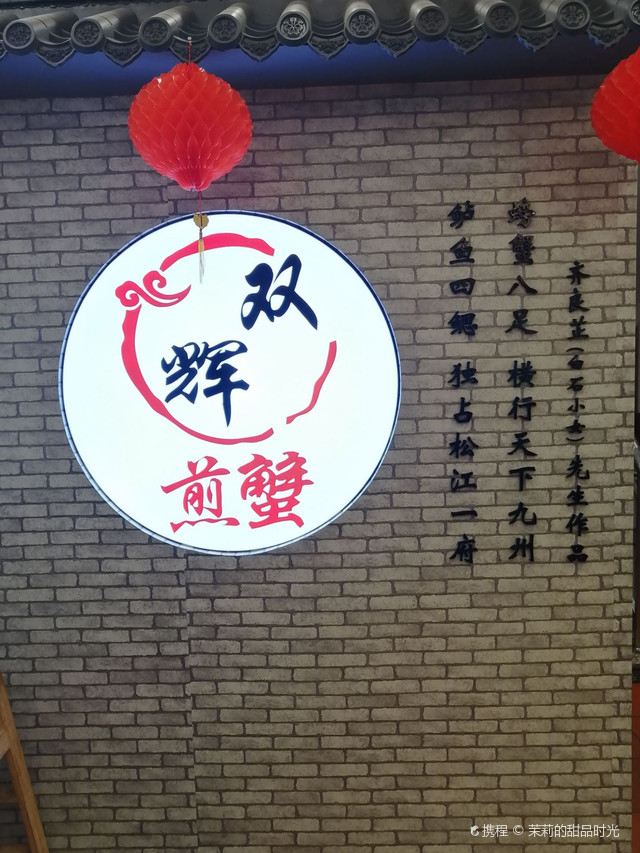 双辉
煎蟹
齐良芷(白石小女)先生作品
螃蟹八足 横行天下九州
鲈鱼四鳃 独占松江一府
携程 © 茉莉的甜品时光